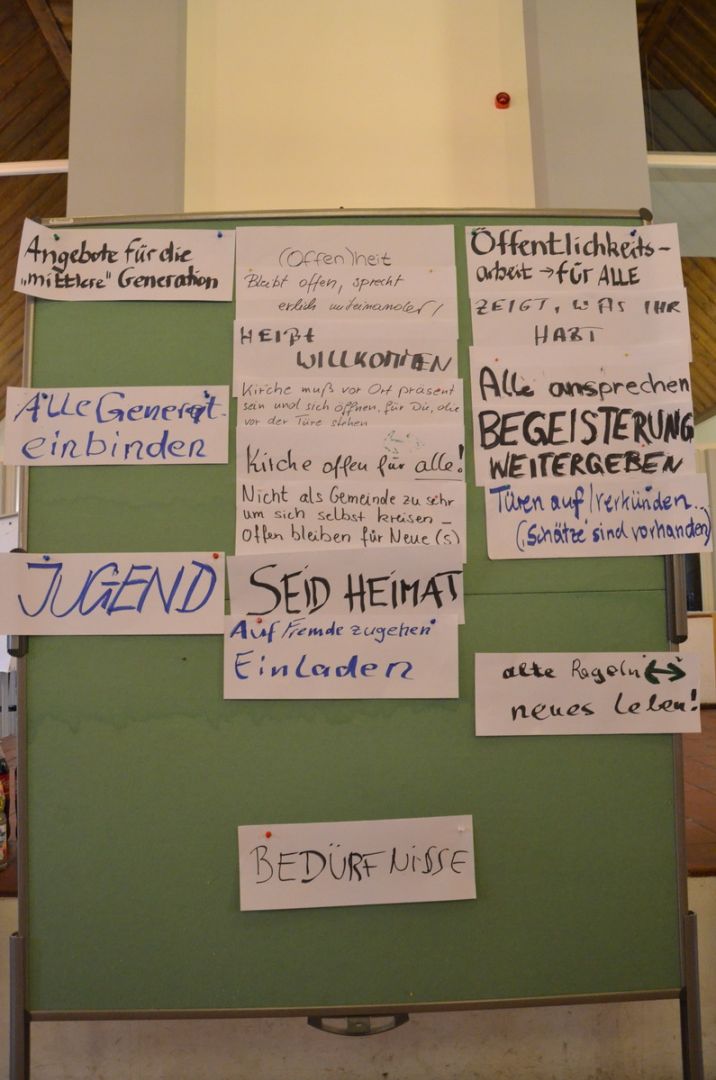 Angebote für die
„mittlere" Generation
Alle Generat.
einbinden
JUGEND
(Offen)heit
Bleibt offen, sprecht
erlich miteinander!
HEIßt
WILLKOMMEN
Kirche muß vor Ort präsent
sein und sich öffnen, für Die, die
vor der Türe stehen
Kirche offen für alle!
Nicht als Gemeinde zu sehr
um sich selbst kreisen –
Offen bleiben für Neue(s)
SEID HEIMAT
Auf Fremde zugehen
Einladen
Öffentlichkeits-
arbeit → FÜR ALLE
ZEIGT, WAS IHR
HABT
Alle ansprechen
BEGEISTERUNG
WEITERGEBEN
Türen auf/verkünden..
(‚Schätze' sind vorhanden)
alte Regeln ↔
neues Leben!
BEDÜRFNISSE